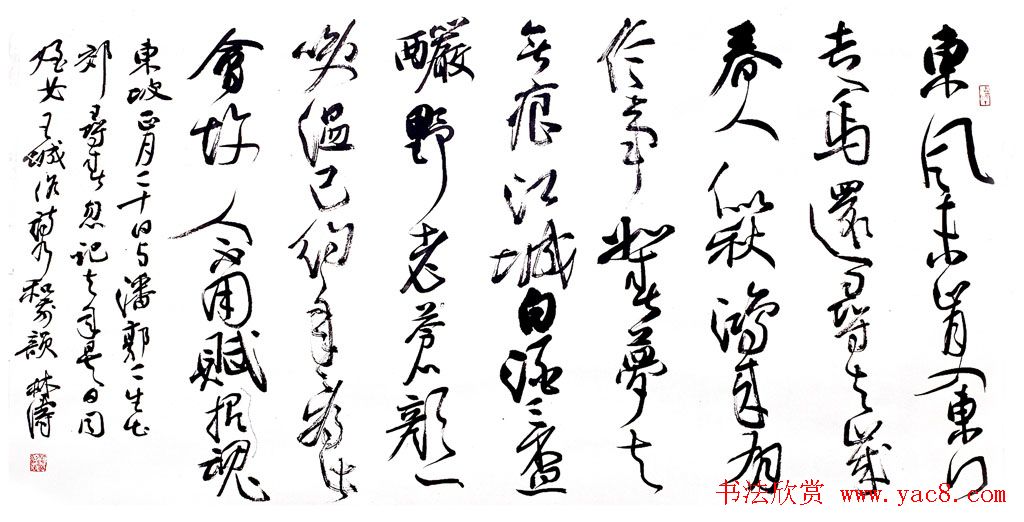 東風未肯入東門
走馬還尋去歲
春人似秋鴻來有
信事如春夢了
無痕江城白酒三盃
釅野老蒼顏一
笑溫已約年年為此
會故人不用賦招魂
東坡正月二十日与潘郭二生出
郊尋春忽記去年是日同
至女王城作詩乃和前韻 林濤
书法欣赏 www.yac8.com